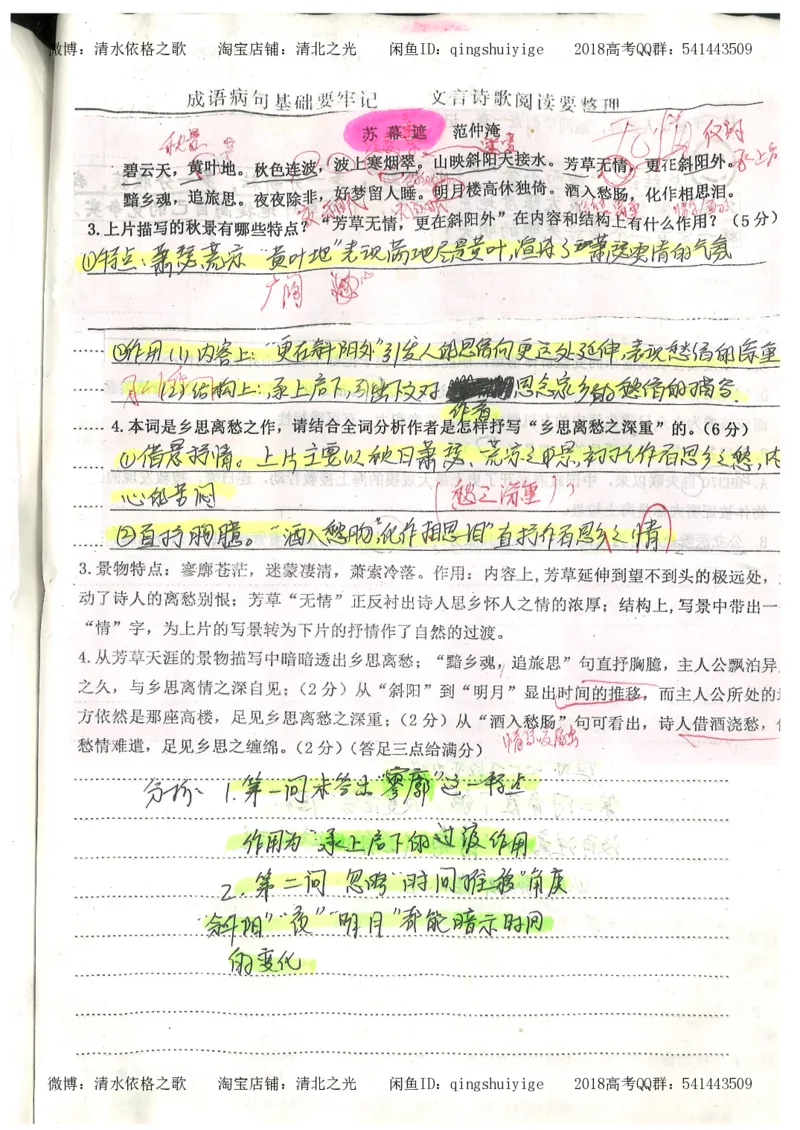 微博：清水依格之歌 淘宝店铺：清北之光 闲鱼ID：qingshuiyige 2018高考QQ群：541443509
成语病句基础要牢记 文言诗歌阅读要整理
苏幕遮 范仲淹
秋景
碧云天，黄叶地。秋色连波，波上寒烟翠。山映斜阳天接水。芳草无情，更在斜阳外。
黯乡魂，追旅思。夜夜除非，好梦留人睡。明月楼高休独倚。酒入愁肠，化作相思泪。
3.上片描写的秋景有哪些特点？“芳草无情，更在斜阳外”在内容和结构上有什么作用？（5分）
①特点：萧瑟、荒凉 “黄叶地”表现满地尽是黄叶，渲染了萧瑟凄清的气氛
广阔
②作用(1)内容上：“更在斜阳外”引发人的思绪向更远处延伸，表现愁绪的深重
(2)结构上：承上启下，引出下文对作者思念家乡的愁绪的描写.
4.本词是乡思离愁之作，请结合全词分析作者是怎样抒写“乡思离愁之深重”的。（6分）
①借景抒情。上片主要以秋日萧瑟、荒凉之景，衬托作者思乡之愁，内
心的苦闷
（愁之深重）
②直抒胸臆。“酒入愁肠，化作相思泪”直抒作者思乡之情
3.景物特点：寥廓苍茫，迷蒙凄清，萧索冷落。作用：内容上,芳草延伸到望不到头的极远处，
动了诗人的离愁别恨；芳草“无情”正反衬出诗人思乡怀人之情的浓厚；结构上,写景中带出一
“情”字，为上片的写景转为下片的抒情作了自然的过渡。
4.从芳草天涯的景物描写中暗暗透出乡思离愁；“黯乡魂，追旅思”句直抒胸臆，主人公飘泊异
之久，与乡思离情之深自见；（2分）从“斜阳”到“明月”显出时间的推移，而主人公所处的
方依然是那座高楼，足见乡思离愁之深重；（2分）从“酒入愁肠”句可看出，诗人借酒浇愁，
愁情难遣，足见乡思之缠绵。（2分）（答足三点给满分）
分析： 1.第一问未答出“寥廓”这一特点
作用为“承上启下的过渡作用
2.第二问 忽略“时间推移”角度
“斜阳”“夜”“明月”都能暗示时间
的变化
微博：清水依格之歌 淘宝店铺：清北之光 闲鱼ID：qingshuiyige 2018高考QQ群：541443509